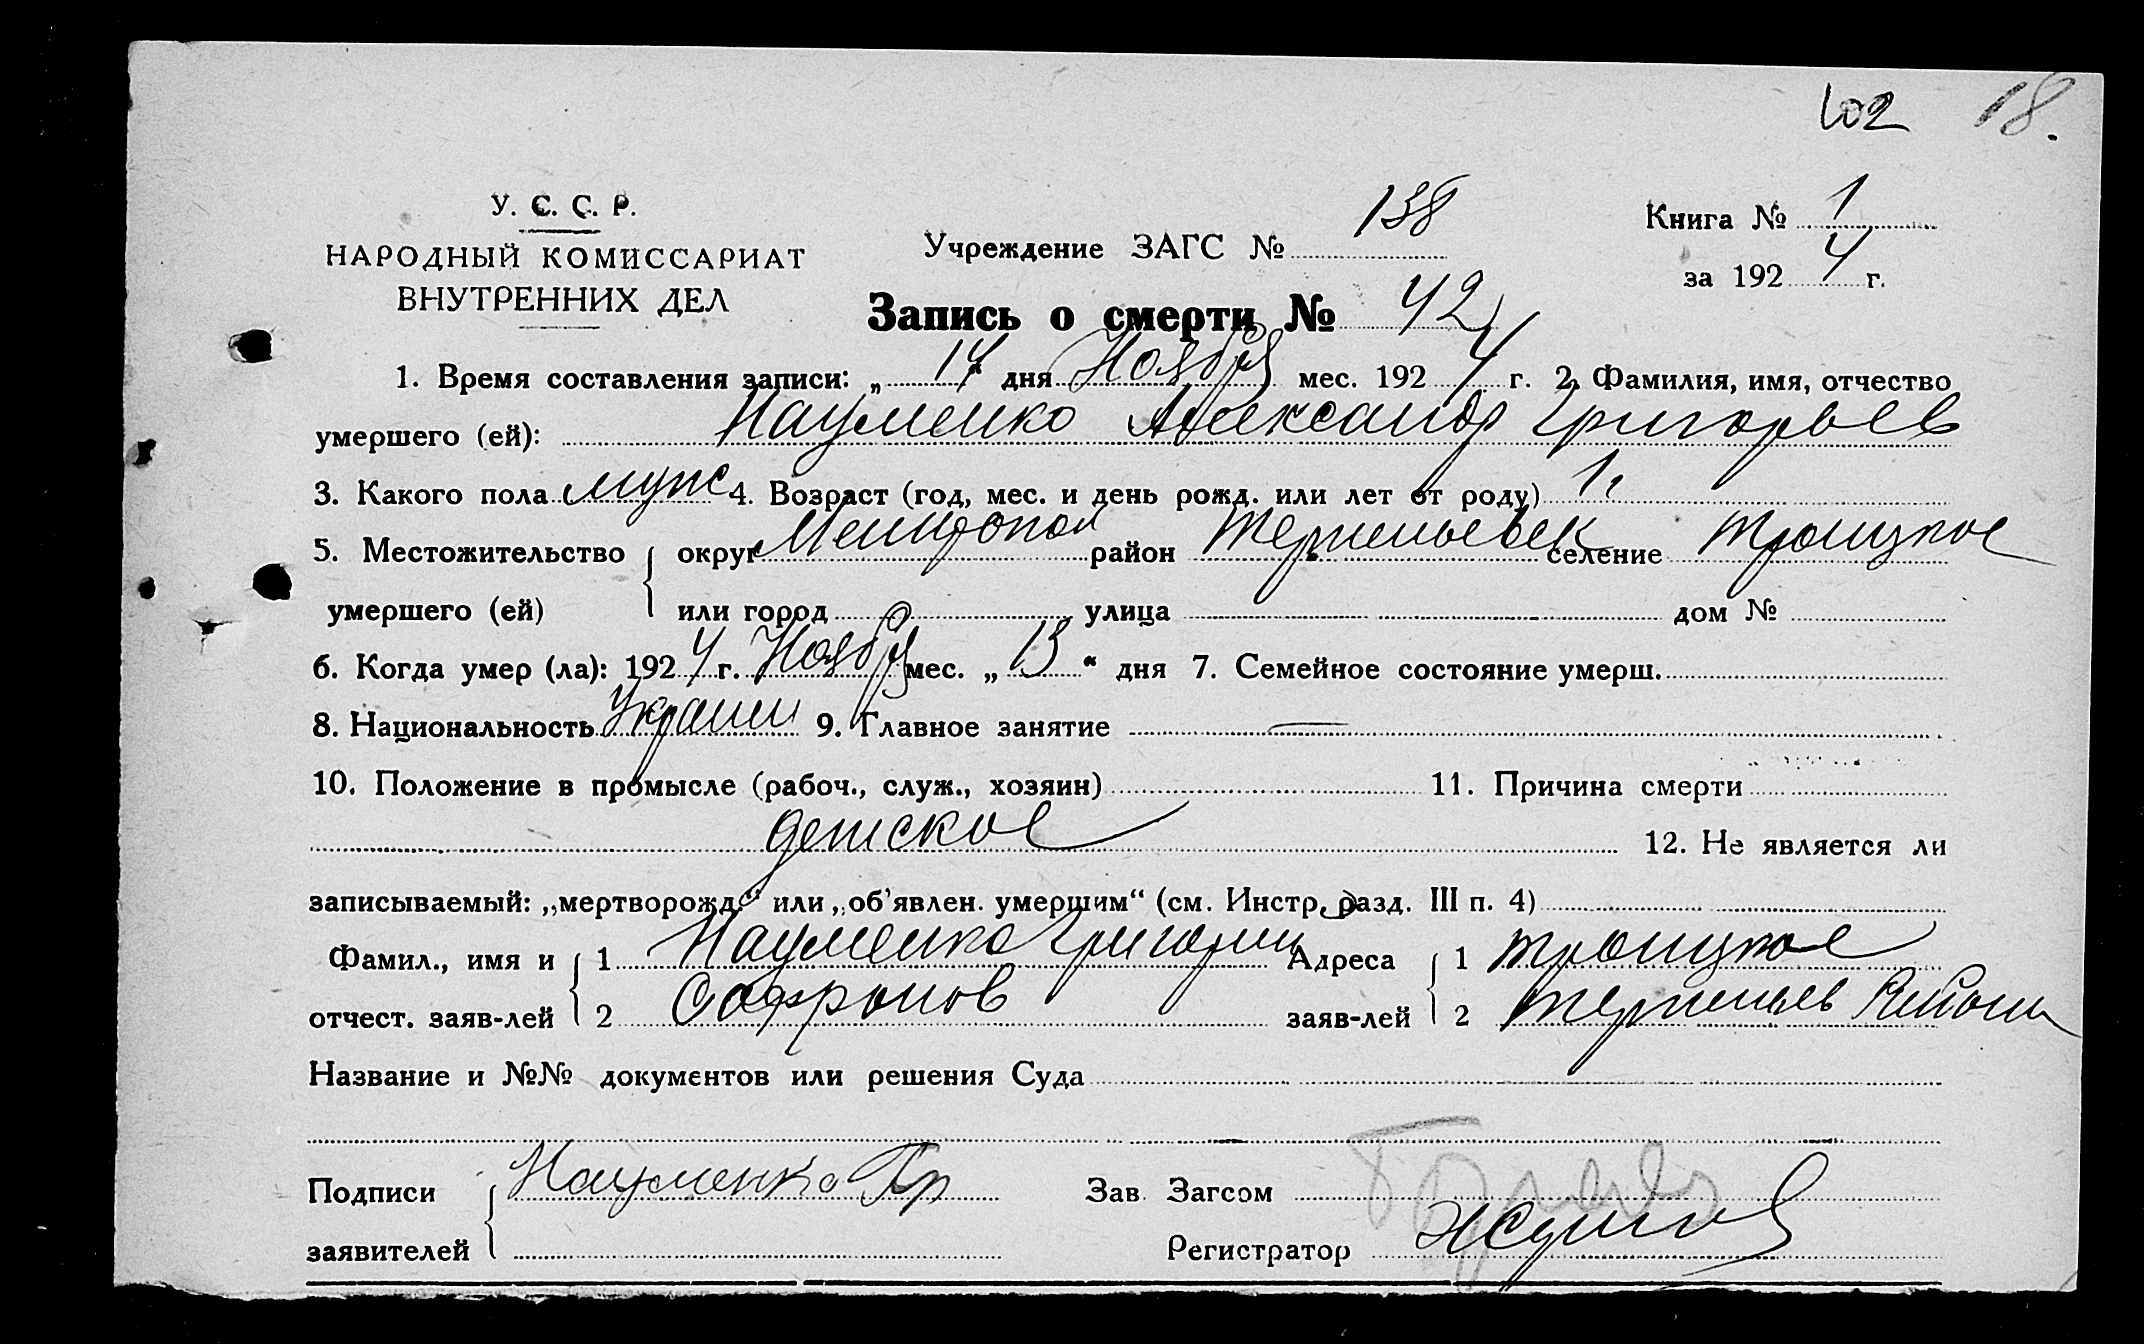 102 18.
У. С. С. Р.
НАРОДНЫЙ КОМИССАРИАТ
ВНУТРЕННИХ ДЕЛ
Учреждение ЗАГС № 138
Книга № 1
за 1924 г.
Запись о смерти № 42
1. Время составления записи: „ 14 дня Ноября мес. 1924 г. 2. Фамилия, имя, отчество
умершего (ей): Науменко Александр Григорьев
3. Какого пола муж 4. Возраст (год, мес. и день рожд. или лет от роду) 1 г
5. Местожительство округ район селение Троицкое
умершего (ей) или город улица дом №
6. Когда умер (ла): 1924 г. Ноября мес. „ 13 “ дня 7. Семейное состояние умерш.
8. Национальность Украин 9. Главное занятие —
10. Положение в промысле (рабоч., служ., хозяин) 11. Причина смерти
детское 12. Не является ли
записываемый: „мертворожд.“ или „об'явлен. умершим“ (см. Инстр. разд. III п. 4)
Фамил., имя и 1 Науменко Григорий Адреса 1 Троицкое
отчест. заяв-лей 2 Софронов заяв-лей 2 Район
Название и №№ документов или решения Суда
Подписи Науменко Гр Зав. Загсом
заявителей Регистратор